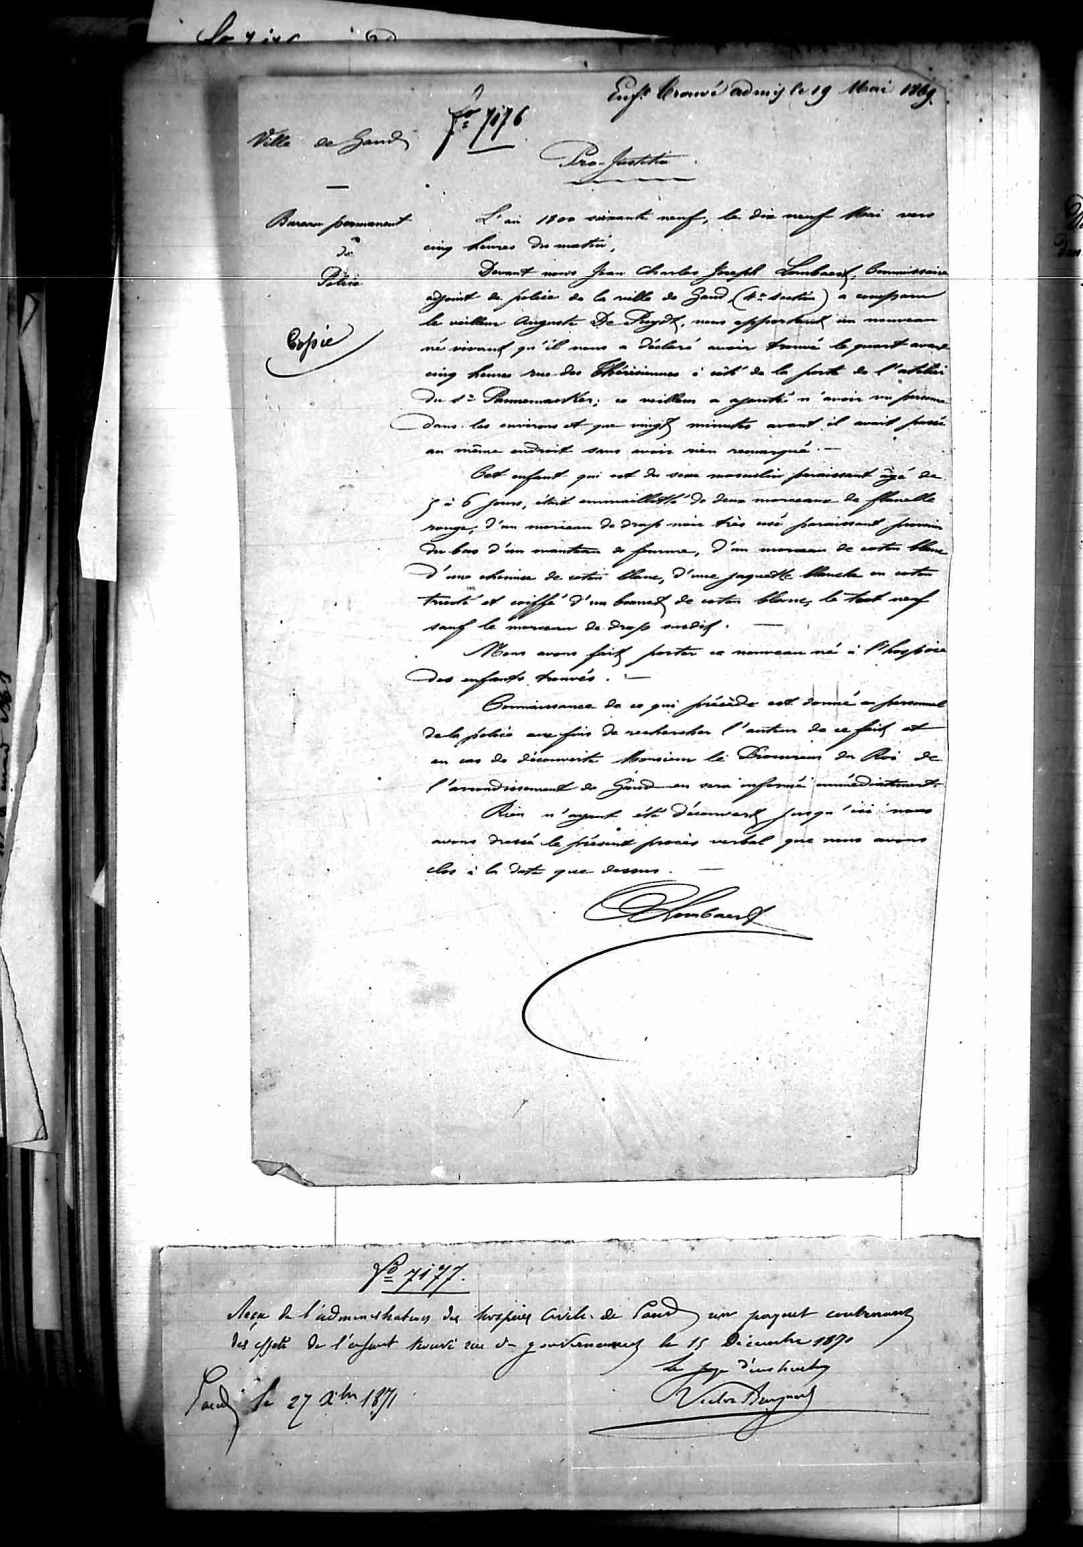 Enft trouvé admis le 19 Mai 1869.
Fo 7176
Ville de Gand
Pro-Justitia
Bureau permanent
de
Police
Copie
L'an 1800 soixante neuf, le dix neuf Mai vers
cinq heures du matin,
Devant nous Jean Charles Joseph Lombaert, Commissaire
adjoint de police de la ville de Gand, (4me section) a comparu
le veilleur Auguste De Ruydt, nous apportant un nouveau
né vivant qu'il nous a déclaré avoir trouvé le quart avant
cinq heures rue des Thérésiennes à côté de la porte de l'atelier
du Sr Pannemaecker; ce veilleur a ajouté n'avoir vu personne
dans les environs et que vingt minutes avant il avait passé
au même endroit sans avoir rien remarqué. —
Cet enfant qui est du sexe masculin paraissant âgé de
5 à 6 jours, était emmailloté de deux morceaux de flanelle
rouge, d'un morceau de drap noir très usé paraissant provenir
du bas d'un manteau de femme, d'un morceau de coton blanc
d'une chemise de coton blanc, d'une jaquette blanche en coton
tricoté et coiffé d'un bonnet de coton blanc, le tout neuf
sauf le morceau de drap susdit. —
Nous avons fait porter ce nouveau né à l'hospice
des enfants trouvés. —
Connaissance de ce qui précède est donné au personnel
de la police aux fins de rechercher l'auteur de ce fait et
en cas de découverte Monsieur le Procureur du Roi de
l'arrondissement de Gand en sera informé immédiatement.
Rien n'ayant été découvert jusqu'ici nous
avons dressé le présent procès verbal que nous avons
clos à la date que dessus. —
Lombaert
No 7177.
Reçu de l'administration des hospices civils de Gand un paquet contenant
des effets de l'enfant trouvé rue du gouvernement le 15 Décembre 1870
Le juge d'instruction
Gand le 27 Xbre 1871
Victor